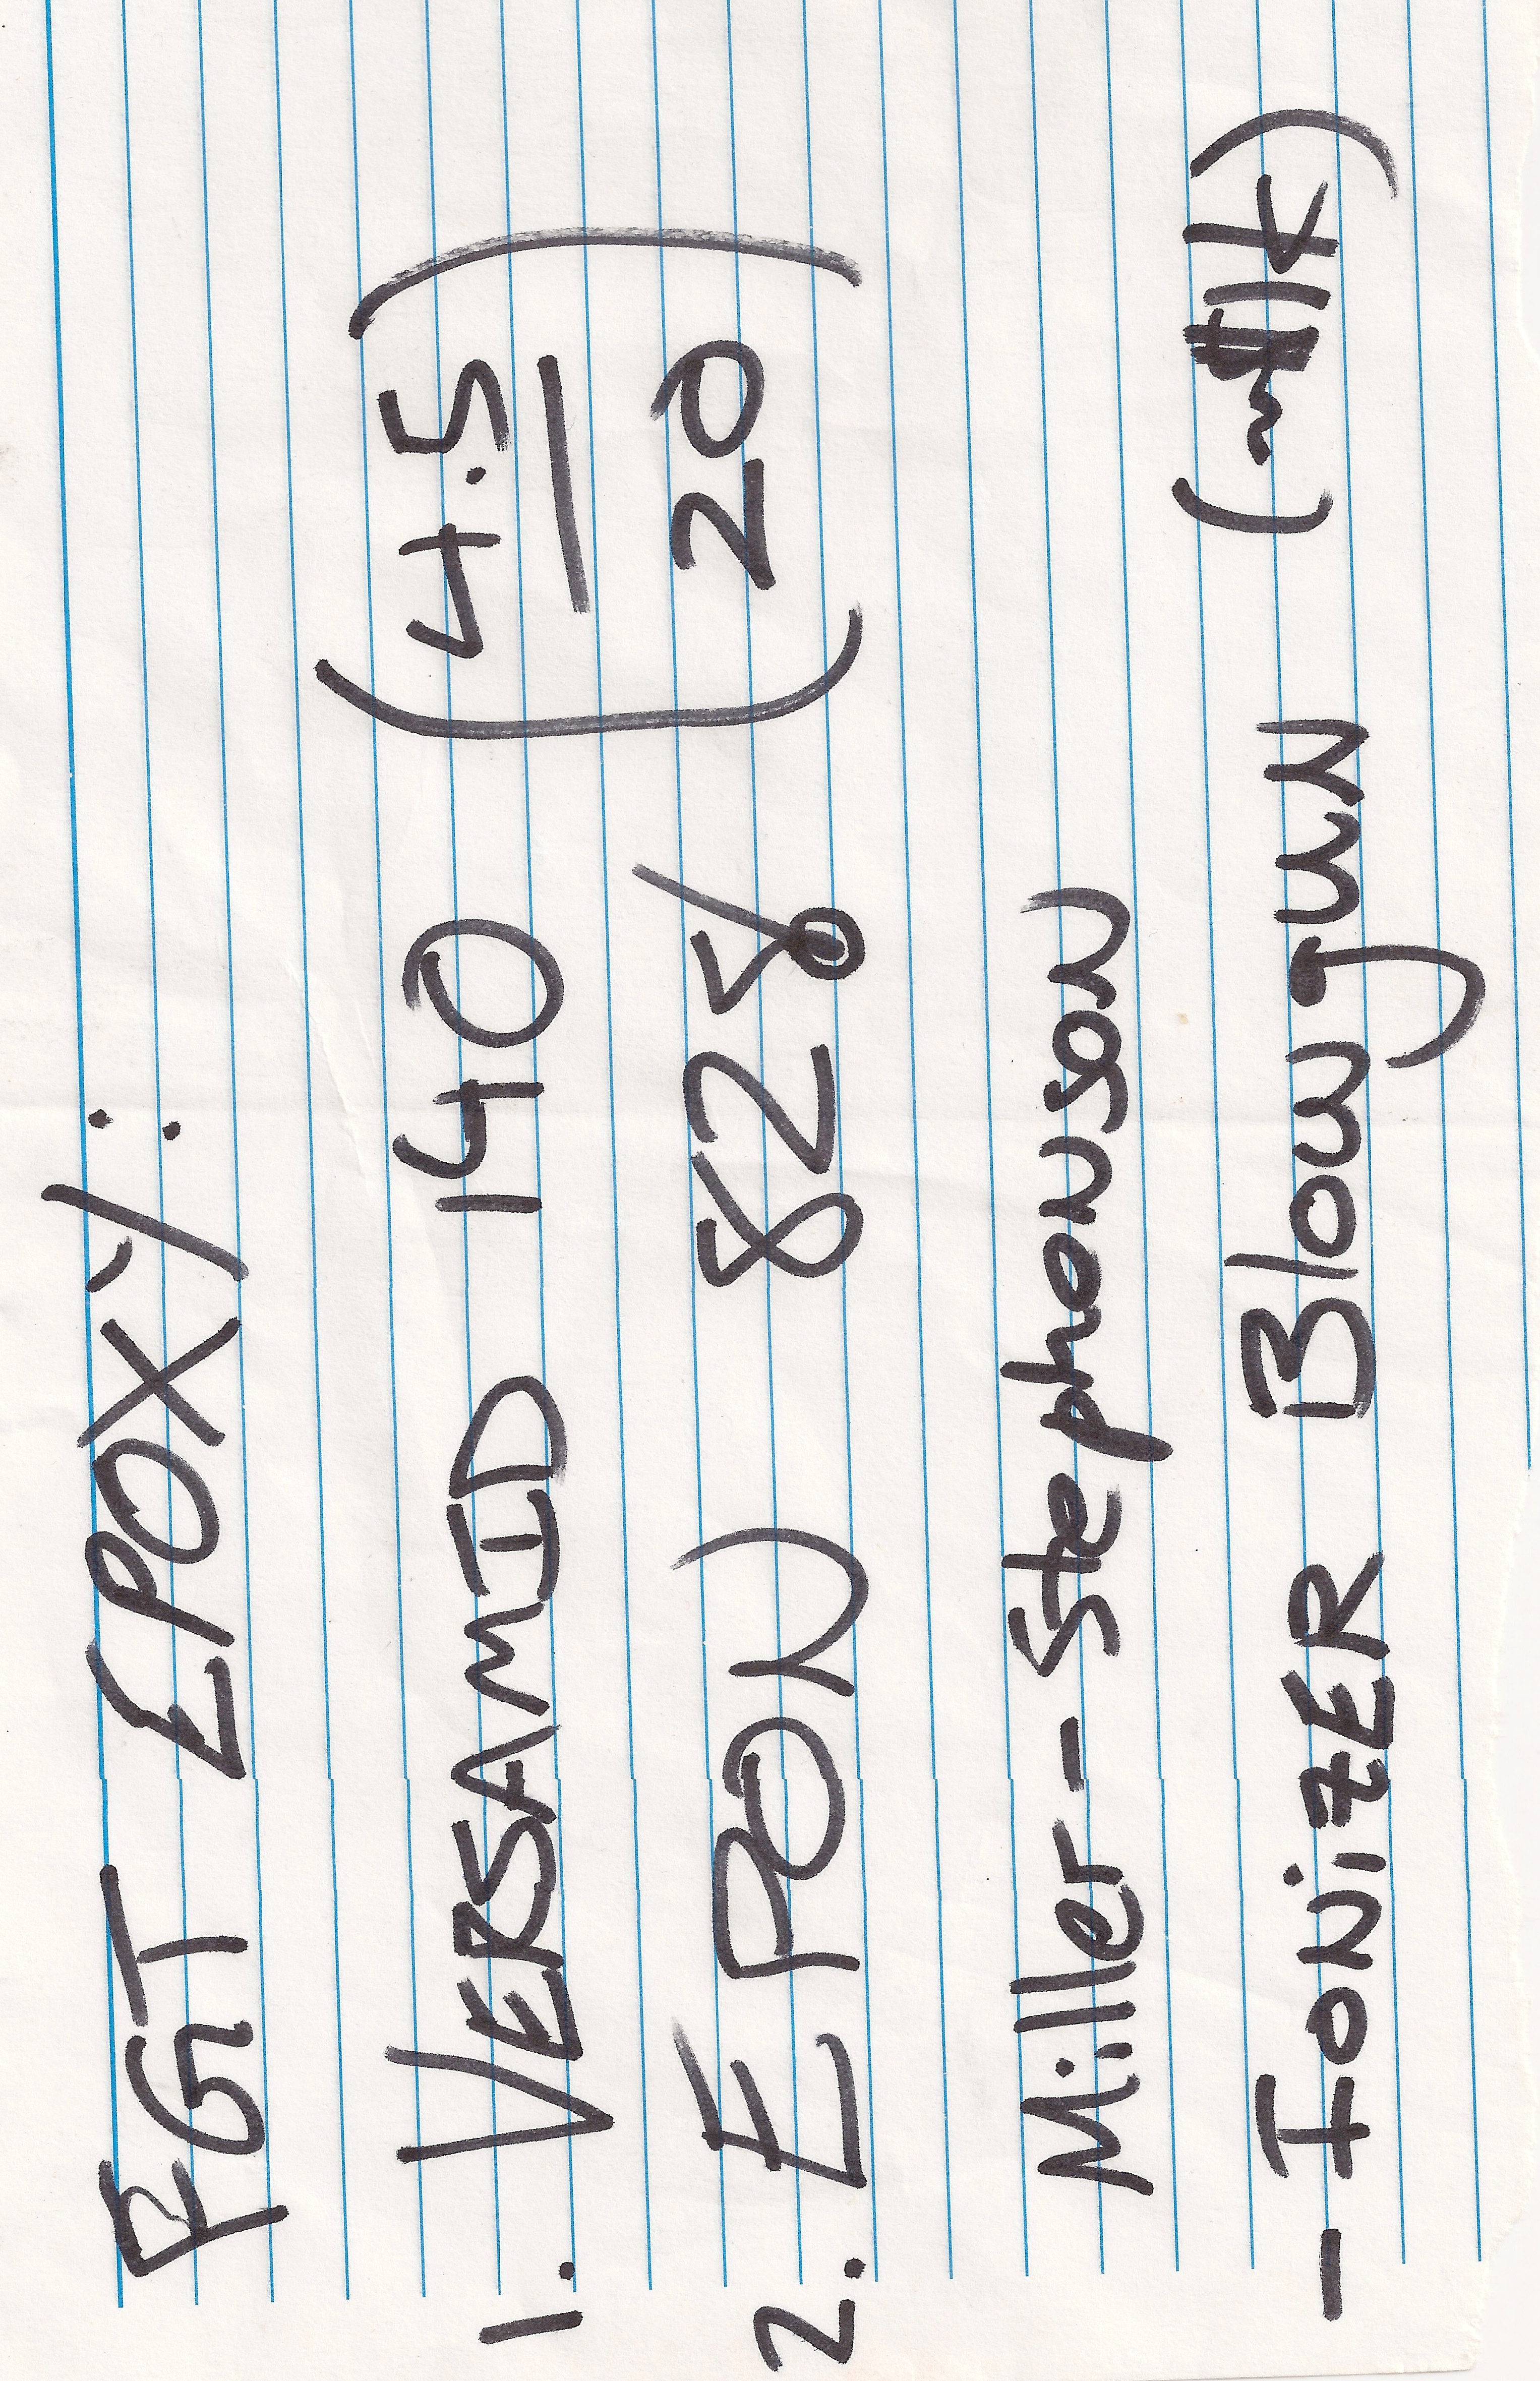 RGT EPOXY:
1. VERSAMID 140 (4.5
2. EPON 828 20)
Miller-Stephonson
- IONiZER Blowgun (~$1k)